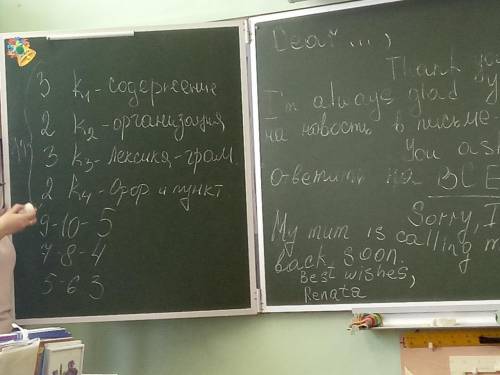 3 K1 - содержение
2 K2 - организация
3 K3 - лексика-грам.
2 K4 - Орф. и пункт
9-10- 5
7-8-4
5-6 3
Dear ...,
Thank
I'm always glad
на новость в письме
You
ответить на ВСЕ
Sorry, I
My mum is calling
back soon.
Best wishes,
Renata